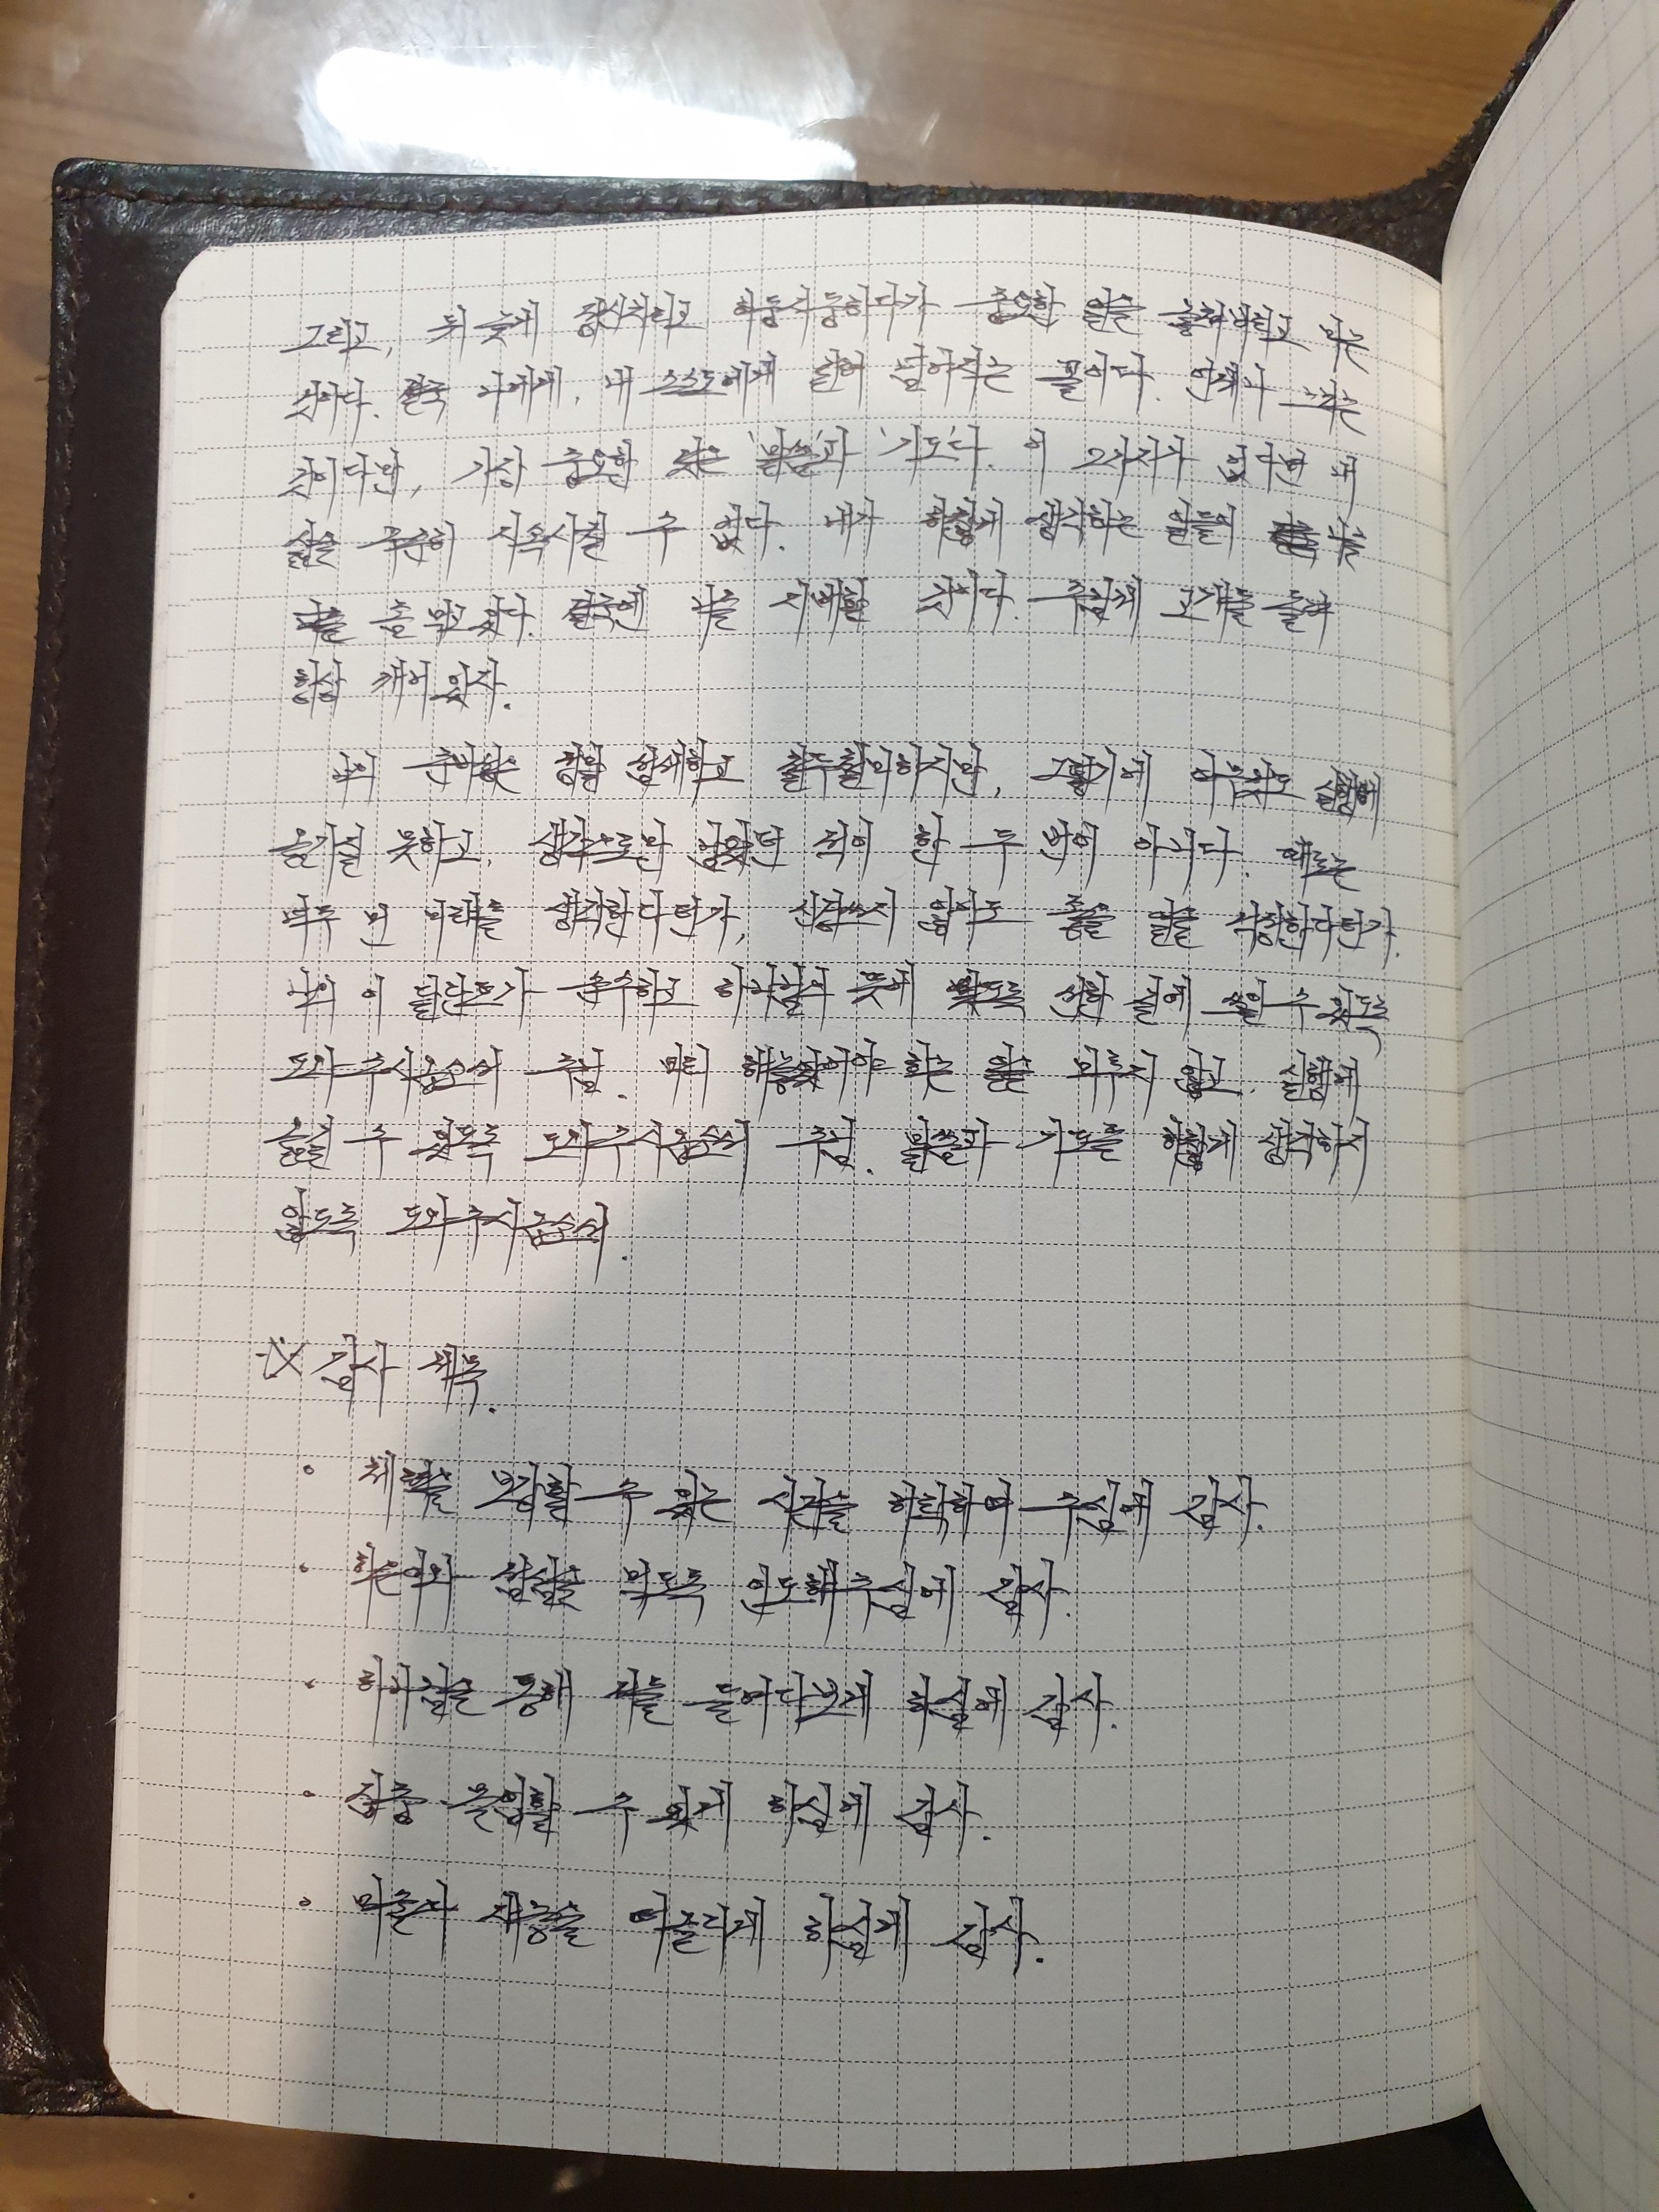 그리고, 뒤 늦게 정신차리고 허둥지둥하다가 중요한 일을 놓쳐버리고 마는
것이다. 결국 나에게, 내 스스로에게 걸려 넘어지는 꼴이다. 언제나 느끼는
것이다만, 가장 중요한 것은 '말씀'과 '기도'다. 이 2가지가 없다면 내
삶을 꾸준히 지속시킬 수 없다. 내가 하찮게 생각하는 일들이 나를
좀 먹고 있다. 결국엔 나를 지배할 것이다. 주님께 고개를 들어
항상 깨어 있자.
나의 준비함은 정말 섬세하고 철두철미하지만, 그렇기에 아무것도 실행에
옮기질 못하고, 생각으로만 남았던 적이 한 두 번이 아니다. 때로는
너무 먼 미래를 생각한다던가, 신경쓰지 않아도 좋을 일을 걱정한다던가.
나의 이 달란트가 순수하고 하나님의 뜻에 맞도록 선한 길에 쓰일 수 있도록
도와주시옵소서 주님. 미리 해놓았어야 하는 일을 미루지 않고, 실행에
옮길 수 있도록 도와주시옵소서 주님. 말씀과 기도를 하찮게 생각하지
않도록 도와주시옵소서.
※ 감사 제목.
• 체력을 보강할 수 있는 시간을 허락하여 주심에 감사.
• 하은이와 점심을 먹도록 인도해 주심에 감사.
• 하나님을 통해 저를 들여다보게 하심에 감사.
• 집중 몰입할 수 있게 하심에 감사.
• 마춘다 재능을 하심에 감사.